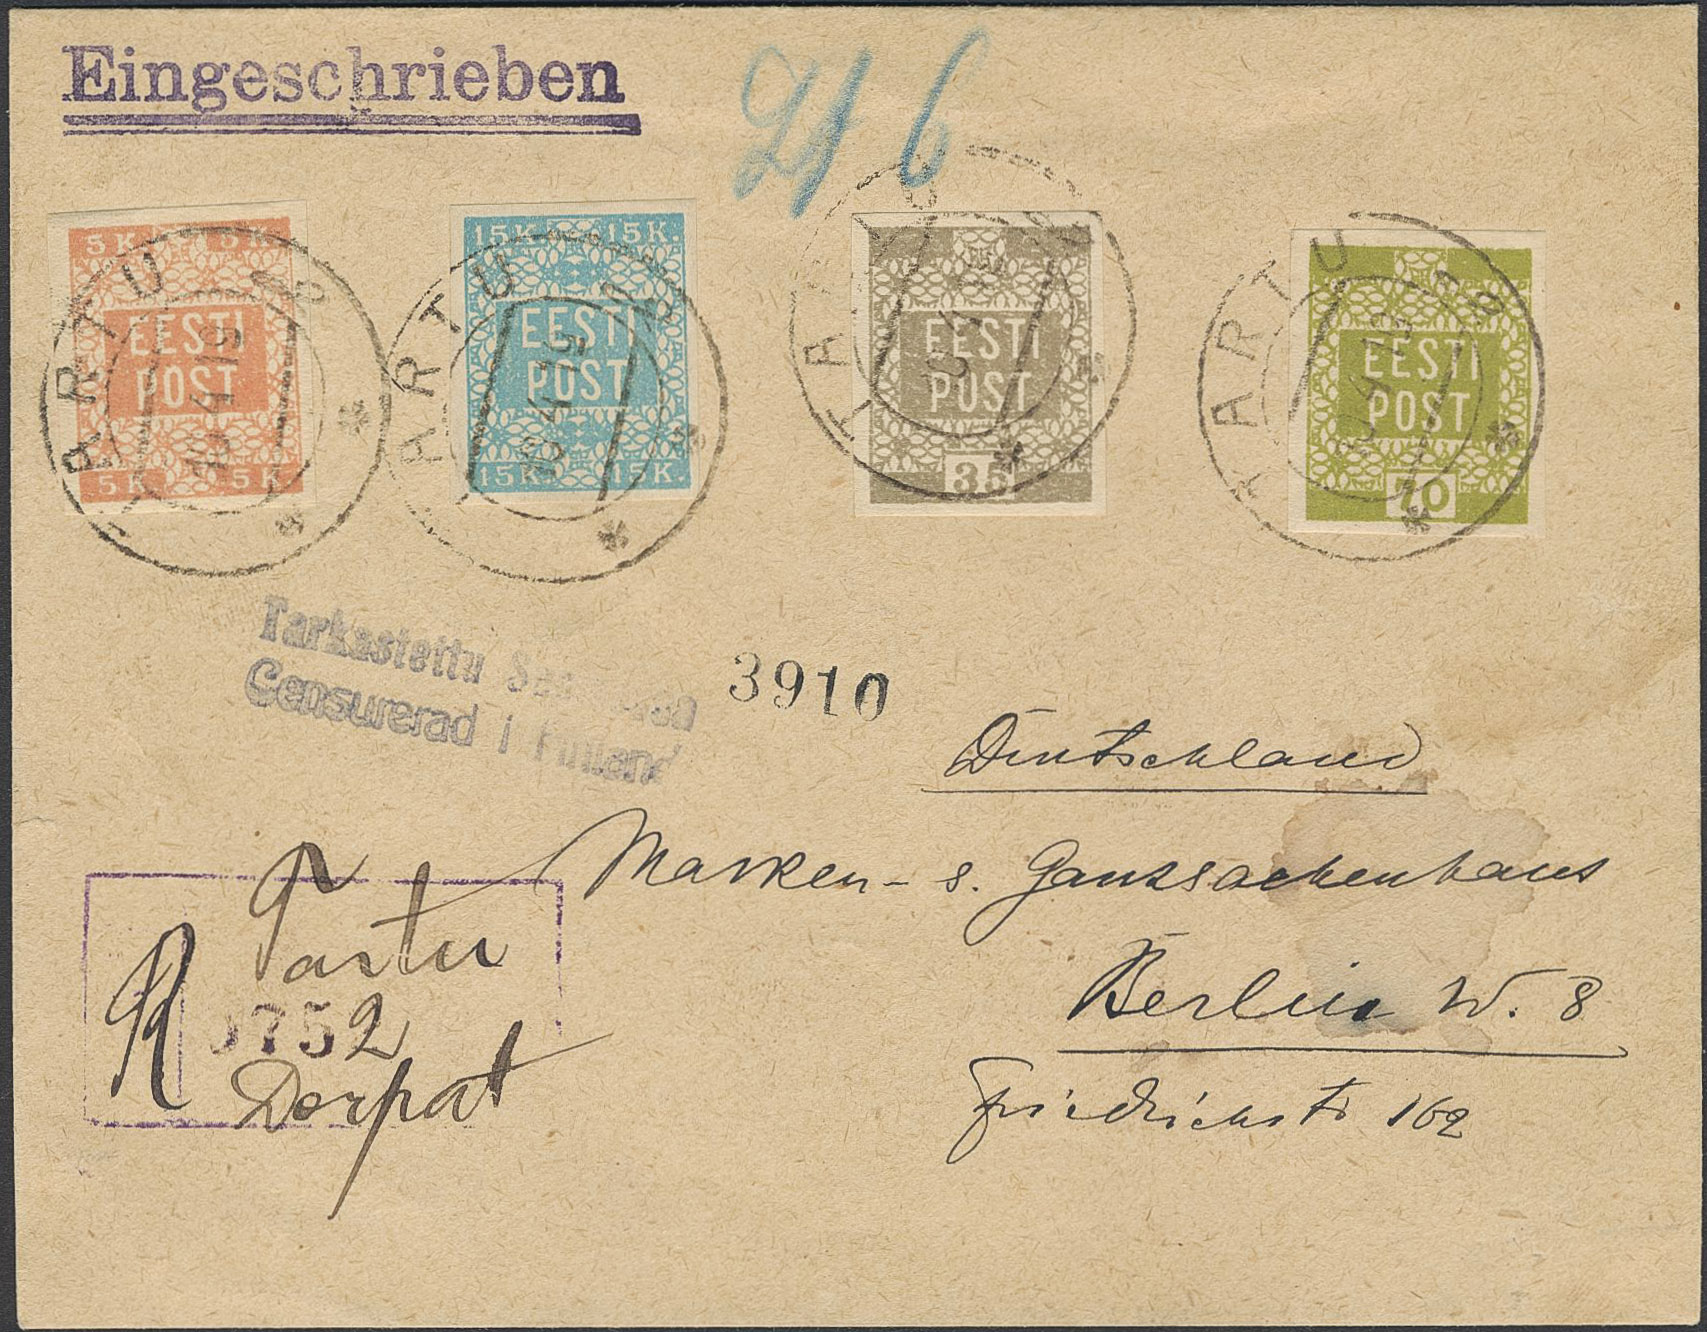 Eingeschrieben
21 6
5 K. 5 K.
EESTI
POST
5 K. 5 K.
TARTU
10 4 19
15 K. 15 K.
EESTI
POST
15 K. 15 K.
TARTU
10 4 19
EESTI
POST
35
TARTU
10 4 19
EESTI
POST
70
TARTU
10 4 19
Tarkastettu
Censurerad i Finland
3910
Deutschland
Marken- s. Ganzsachenhaus
Berlin W. 8
Friedrichstr 162
R
Tartu
752
Dorpat